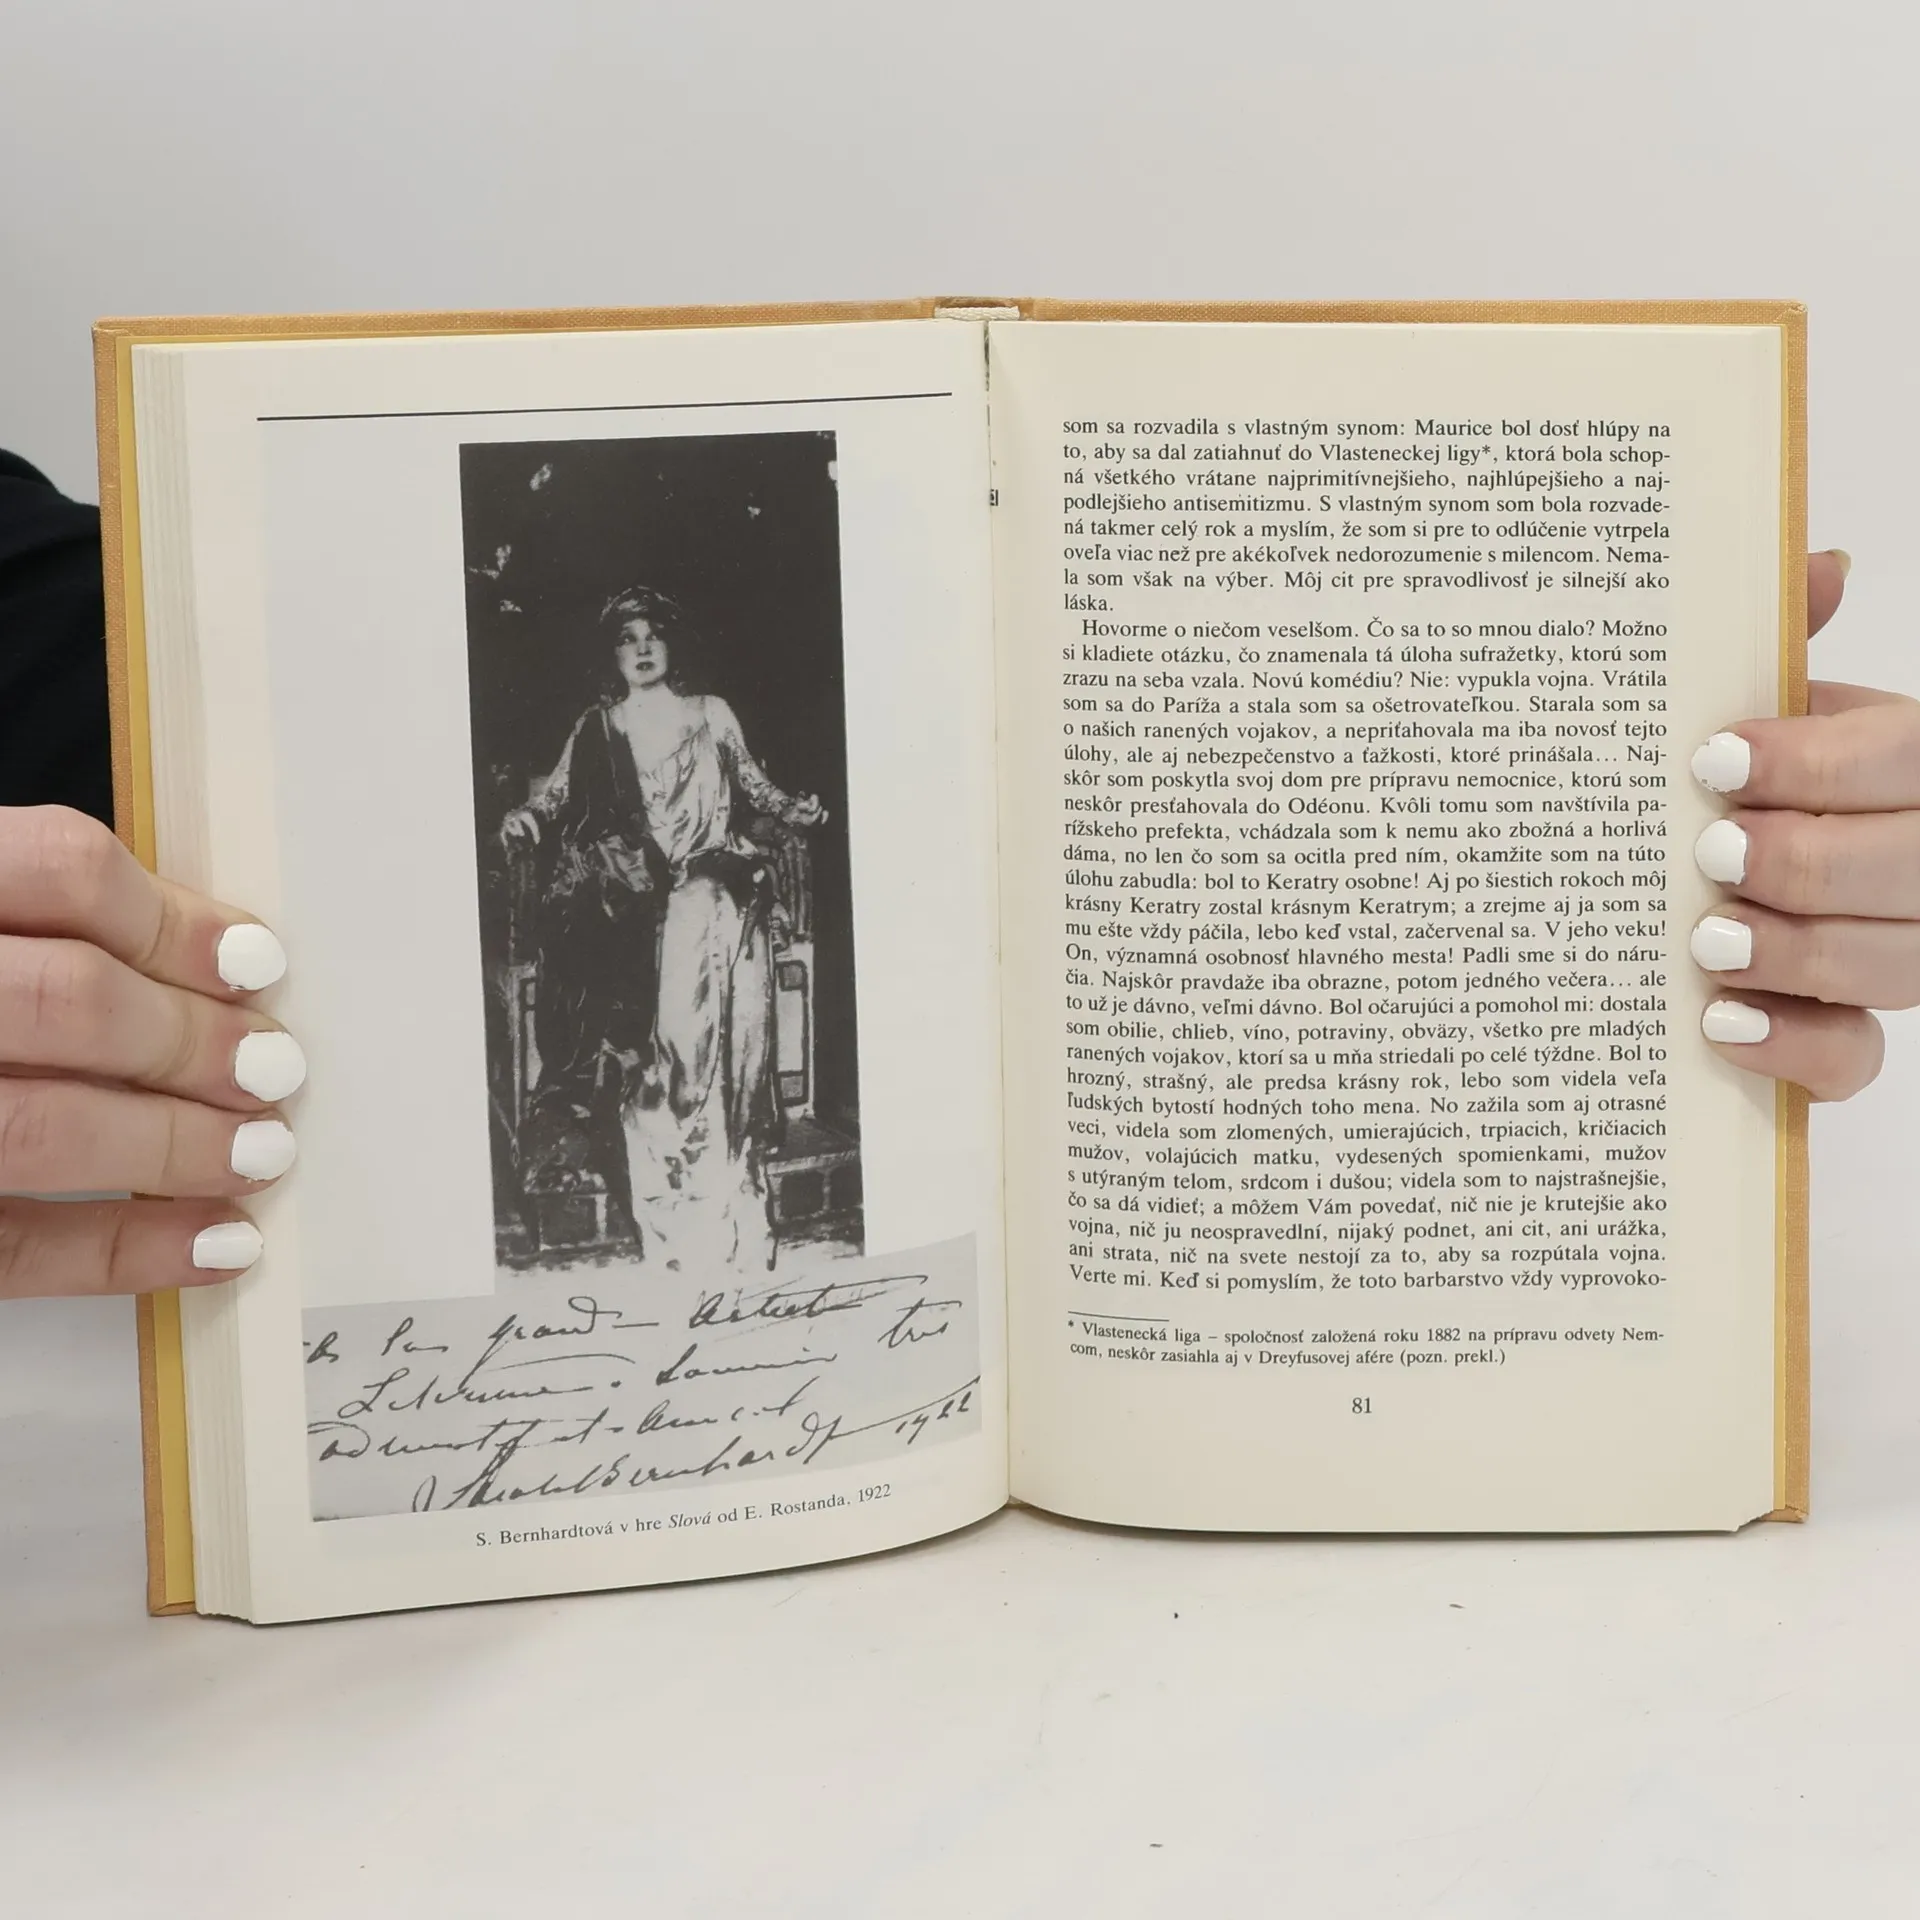 grand
Souvenir très
Sarah Bernhardt 1922
S. Bernhardtová v hre Slová od E. Rostanda, 1922
som sa rozvadila s vlastným synom: Maurice bol dosť hlúpy na
to, aby sa dal zatiahnuť do Vlasteneckej ligy*, ktorá bola schop-
ná všetkého vrátane najprimitívnejšieho, najhlúpejšieho a naj-
podlejšieho antisemitizmu. S vlastným synom som bola rozvade-
ná takmer celý rok a myslím, že som si pre to odlúčenie vytrpela
oveľa viac než pre akékoľvek nedorozumenie s milencom. Nema-
la som však na výber. Môj cit pre spravodlivosť je silnejší ako
láska.
Hovorme o niečom veselšom. Čo sa to so mnou dialo? Možno
si kladiete otázku, čo znamenala tá úloha sufražetky, ktorú som
zrazu na seba vzala. Novú komédiu? Nie: vypukla vojna. Vrátila
som sa do Paríža a stala som sa ošetrovateľkou. Starala som sa
o našich ranených vojakov, a nepriťahovala ma iba novosť tejto
úlohy, ale aj nebezpečenstvo a ťažkosti, ktoré prinášala... Naj-
skôr som poskytla svoj dom pre prípravu nemocnice, ktorú som
neskôr presťahovala do Odéonu. Kvôli tomu som navštívila pa-
rížskeho prefekta, vchádzala som k nemu ako zbožná a horlivá
dáma, no len čo som sa ocitla pred ním, okamžite som na túto
úlohu zabudla: bol to Keratry osobne! Aj po šiestich rokoch môj
krásny Keratry zostal krásnym Keratrym; a zrejme aj ja som sa
mu ešte vždy páčila, lebo keď vstal, začervenal sa. V jeho veku!
On, významná osobnosť hlavného mesta! Padli sme si do náru-
čia. Najskôr pravdaže iba obrazne, potom jedného večera... ale
to už je dávno, veľmi dávno. Bol očarujúci a pomohol mi: dostala
som obilie, chlieb, víno, potraviny, obväzy, všetko pre mladých
ranených vojakov, ktorí sa u mňa striedali po celé týždne. Bol to
hrozný, strašný, ale predsa krásny rok, lebo som videla veľa
ľudských bytostí hodných toho mena. No zažila som aj otrasné
veci, videla som zlomených, umierajúcich, trpiacich, kričiacich
mužov, volajúcich matku, vydesených spomienkami, mužov
s utýraným telom, srdcom i dušou; videla som to najstrašnejšie,
čo sa dá vidieť; a môžem Vám povedať, nič nie je krutejšie ako
vojna, nič ju neospravedlní, nijaký podnet, ani cit, ani urážka,
ani strata, nič na svete nestojí za to, aby sa rozpútala vojna.
Verte mi. Keď si pomyslím, že toto barbarstvo vždy vyprovoko-
* Vlastenecká liga – spoločnosť založená roku 1882 na prípravu odvety Nem-
com, neskôr zasiahla aj v Dreyfusovej afére (pozn. prekl.)
81